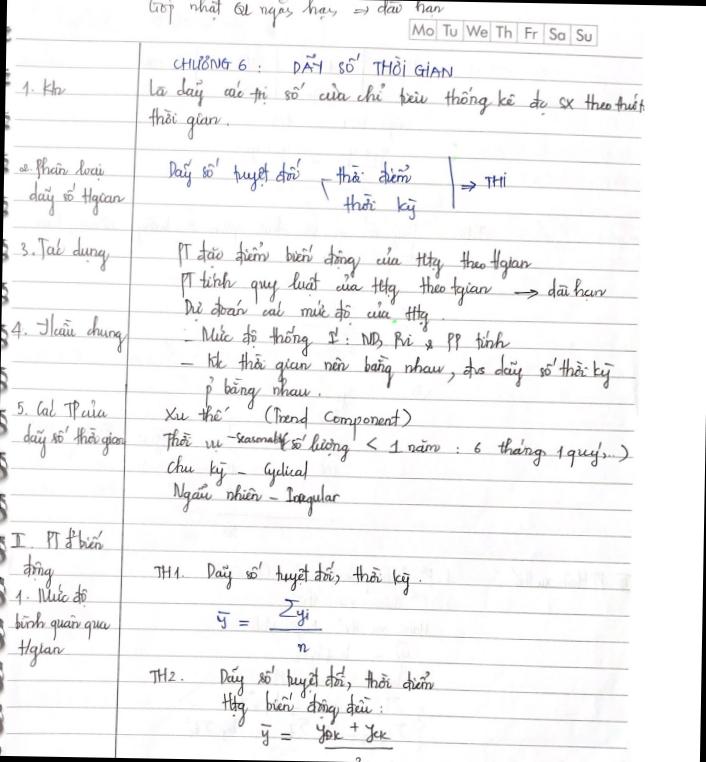 Góp nhặt QL ngắn hạn ⇒ dài hạn
Mo Tu We Th Fr Sa Su
CHƯƠNG 6 : DÃY SỐ THỜI GIAN
1. Kn
Là dãy các trị số của chỉ tiêu thống kê đc SX theo thứ tự
thời gian.
2. Phân loại
dãy số tgian
Dãy số tuyệt đối
thời điểm
thời kỳ
⇒ TH
3. Tác dụng
PT đặc điểm biến động của Htg theo tgian
PT tính quy luật của Htg theo tgian → dài hạn
Dự đoán các mức độ của Htg.
4. Yêu cầu chung
- Mức độ thống I': ND, Pvi & PP tính
- Kc thời gian nên bằng nhau, đvs dãy số thời kỳ
p' bằng nhau.
5. Các TP của
dãy số thời gian
Xu thế (Trend Component)
Thời vụ - Seasonality (số lượng < 1 năm : 6 tháng, 1 quý,...)
Chu kỳ - Cyclical
Ngẫu nhiên - Irregular
II. PT đ² biến
động
1. Mức độ
bình quân qua
tgian
TH1. Dãy số tuyệt đối, thời kỳ.
ȳ = Σyi
n
TH2. Dãy số tuyệt đối, thời điểm
Htg biến động đều :
ȳ = yĐK + yCK
2